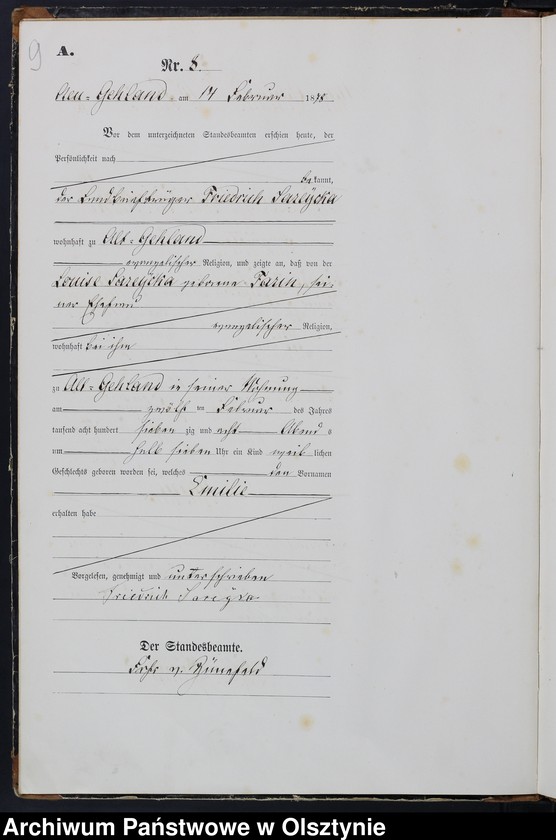 9
A.
Nr. 8.
Neu-Gehland am 14 Februar 1878.
Vor dem unterzeichneten Standesbeamten erschien heute, der
Persönlichkeit nach
bekannt,
der Landbriefträger Friedrich
wohnhaft zu Alt-Gehland
evangelischer Religion, und zeigte an, daß von der
Louise geborene sei-
ner Ehefrau
evangelischer Religion,
wohnhaft bei ihm
zu Alt-Gehland in seiner Wohnung
am zwölften Februar des Jahres
tausend acht hundert siebenzig und acht Abends
um halb sieben Uhr ein Kind weiblichen
Geschlechts geboren worden sei, welches den Vornamen
Emilie
erhalten habe
Vorgelesen, genehmigt und unterschrieben
Friedrich
Der Standesbeamte.
v.
Archiwum Państwowe w Olsztynie